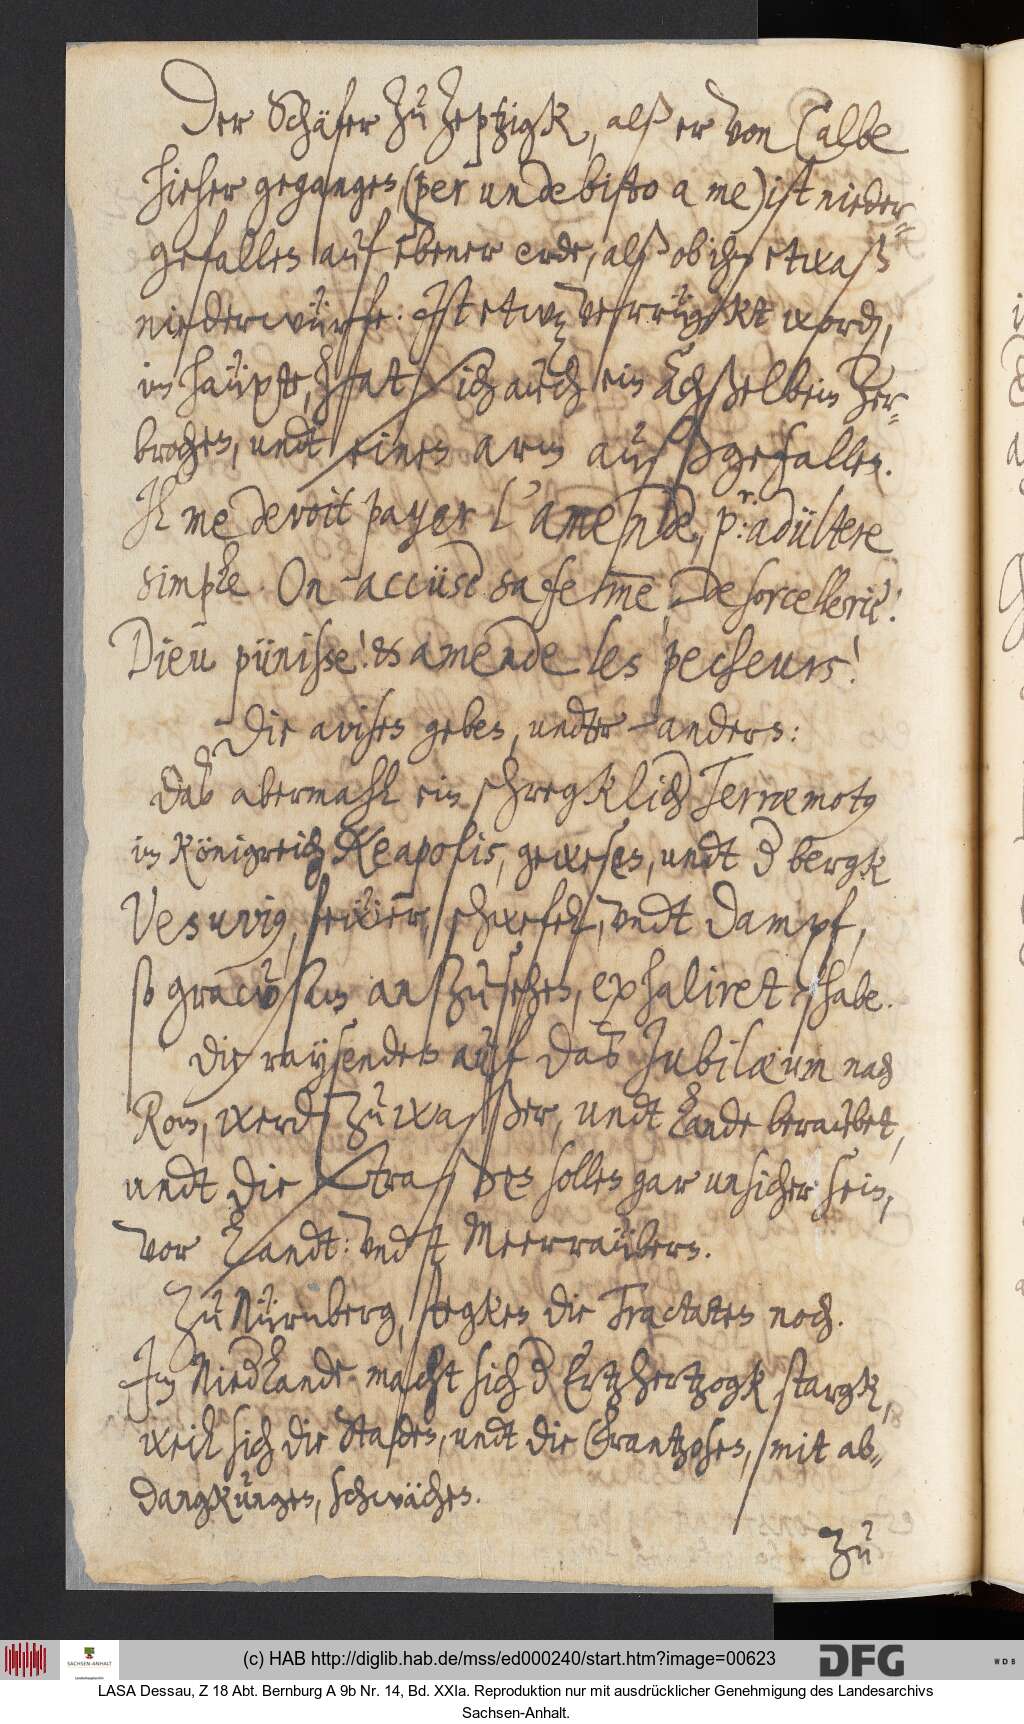 Der Schäfer zu Zeptzigk, alß er von Calbe
hieher gegangen, (per un debito a me) ist nieder-
gefallen auf ebener erde, alß ob ihn etwaß
niederwürfe: Ist etwz verrügkt wordn,
im häupte, hat sich auch ein Achßelbein zer-
brochen, undt einen arm außgefallen.
Il me devoit payer l'amende, p.r adültere
simple. On accüse sa femme, de sorcellerie!
Dieu pünisse! & amende les pecheurs!
Die avisen geben, undter anderm:
Daß abermahl ein schregklich Terræmotus
im Königreich Neapolis, gewesen, undt d bergk
Vesuvius, fewer, schwefel, undt dampf,
so grawsam anzusehen, exhaliret habe.
Die raysenden auf daß Jubilæum nach
Rom, werdn zu waßer, undt Lande beraubet,
undt die straßen sollen gar unsicher sein,
vor Landt: vndt Meerraübern.
Zu Nürnberg, stegken die Tractaten noch.
Im NiedLande macht sich d Ertzhertzogk stargk,
weil sich die Staden, undt die Frantzosen, mit ab-
dangkungen, schwächen.
Zu
(c) HAB http://diglib.hab.de/mss/ed000240/start.htm?image=00623
DFG
WDB
SACHSEN-ANHALT
LASA Dessau, Z 18 Abt. Bernburg A 9b Nr. 14, Bd. XXIa. Reproduktion nur mit ausdrücklicher Genehmigung des Landesarchivs
Sachsen-Anhalt.